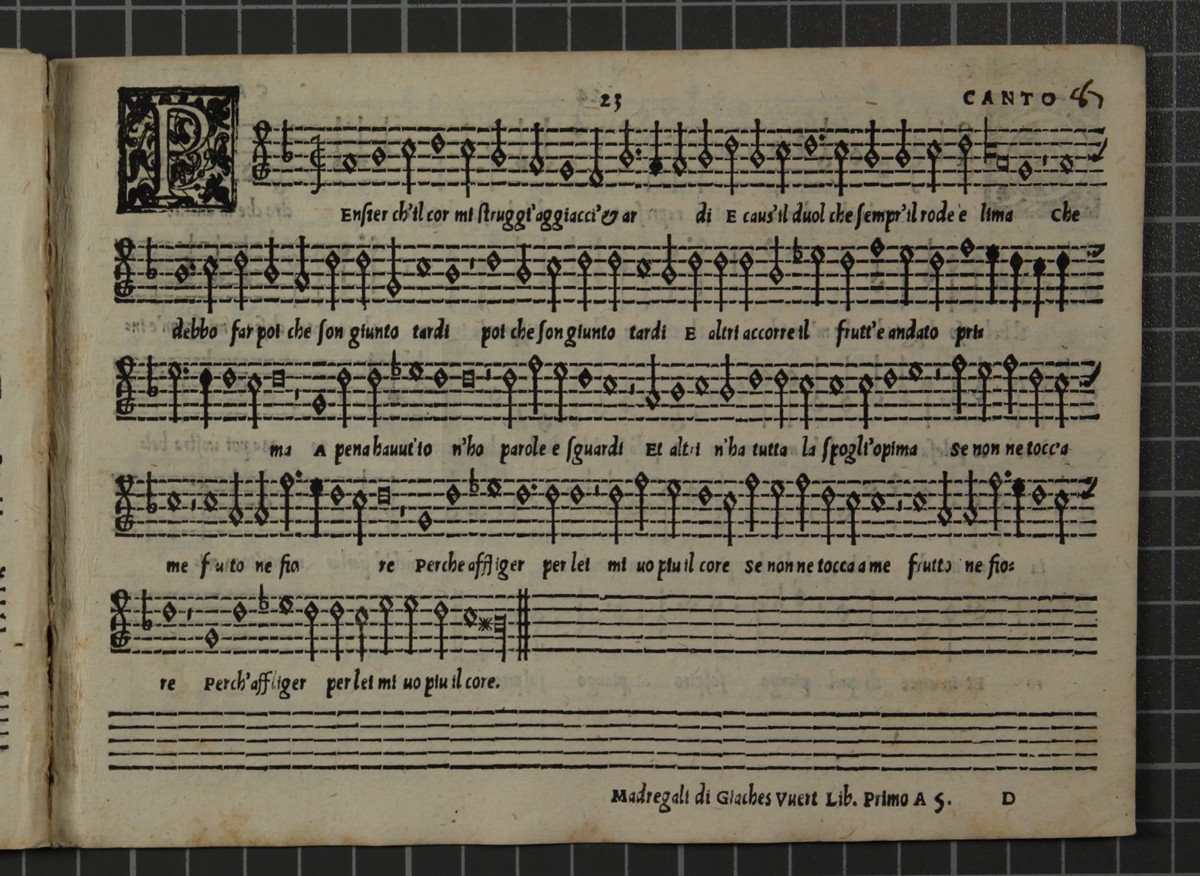 23
CANTO
PEnsier ch'il cor mi struggi'aggiacci'& ar di E caus'il duol che sempr'il rode e lima Che
debbo far poi che son giunto tardi poi che son giunto tardi E altri accorre il frutt'e andato pri=
ma A pena hauut'io n'ho parole e sguardi Et altri n'ha tutta la spogli'opima Se non ne tocc'a
me frutto ne fio re Perche affliger per lei mi uo piu il core Se non ne tocca a me frutto ne fio=
re Perch'affliger per lei mi uo piu il core.
Madregali di Giaches Vuert Lib. Primo A 5. D